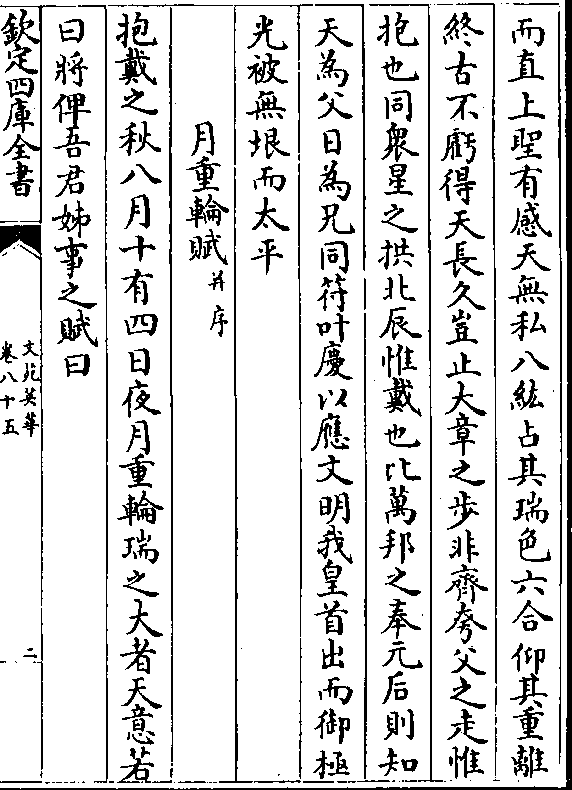 而直上聖有感天無私八紘占其瑞色六合仰其重離
終古不虧得天長久豈止大章之步非齊夸父之走惟
抱也同衆星之拱北辰惟戴也比萬邦之奉元后則知
天為父日為兄同符叶慶以應文明我皇首出而御極
光被無垠而太平
月重輪賦并序
抱戴之秋八月十有四日夜月重輪瑞之大者天意若
曰將俾吾君姊事之賦曰
欽定四庫全書
文苑英華
卷八十五
二